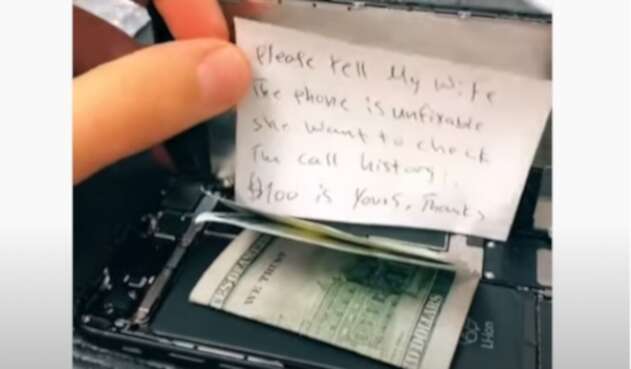 Please tell My Wife
The phone is unfixable
she want to check
The call history.
$100 is Yours. Thanks
WE TRUST
D DOLLARS
Li-ion